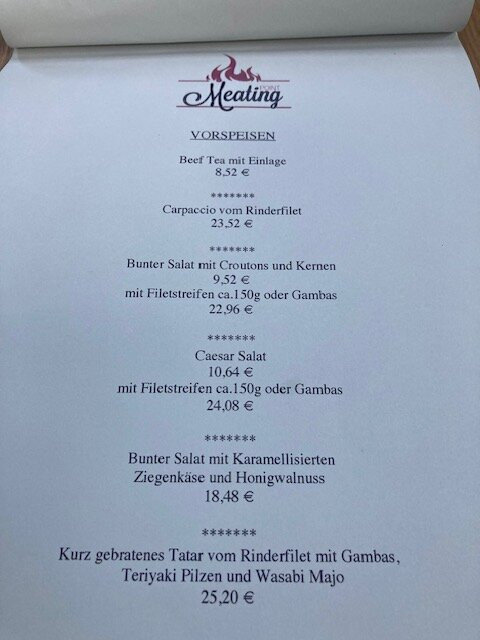 POINT
Meating
VORSPEISEN
Beef Tea mit Einlage
8,52 €
*******
Carpaccio vom Rinderfilet
23,52 €
*******
Bunter Salat mit Croutons und Kernen
9,52 €
mit Filetstreifen ca.150g oder Gambas
22,96 €
*******
Caesar Salat
10,64 €
mit Filetstreifen ca.150g oder Gambas
24,08 €
*******
Bunter Salat mit Karamellisierten
Ziegenkäse und Honigwalnuss
18,48 €
*******
Kurz gebratenes Tatar vom Rinderfilet mit Gambas,
Teriyaki Pilzen und Wasabi Majo
25,20 €